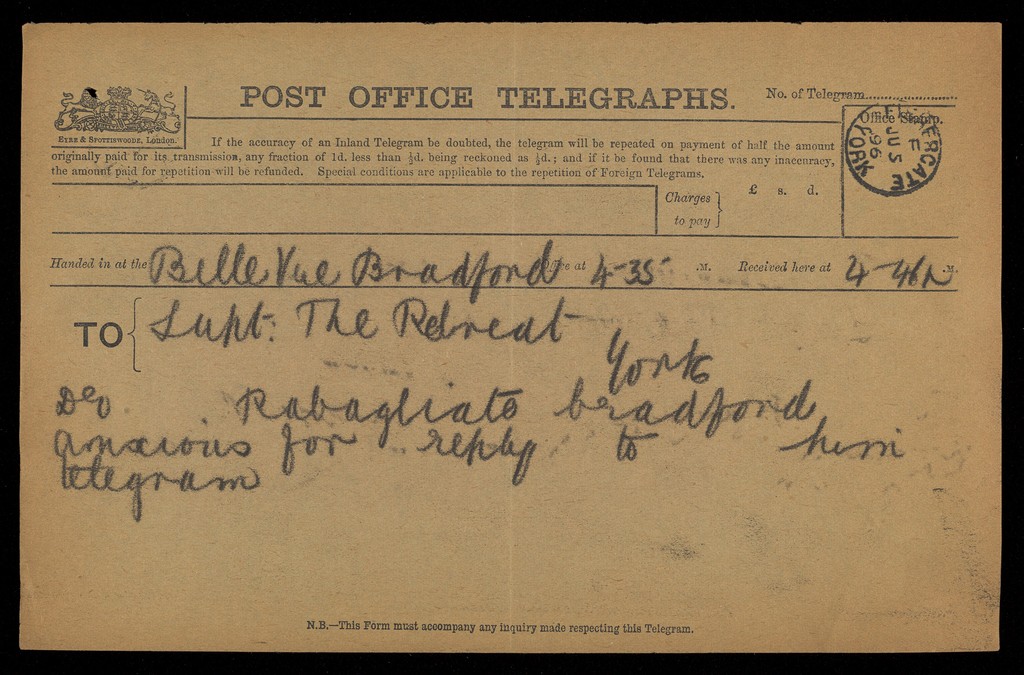 POST OFFICE TELEGRAPHS.
No. of Telegram
EYRE & SPOTTISWOODE, LONDON.
If the accuracy of an Inland Telegram be doubted, the telegram will be repeated on payment of half the amount
originally paid for its transmission, any fraction of 1d. less than ½d. being reckoned as ½d.; and if it be found that there was any inaccuracy,
the amount paid for repetition will be refunded. Special conditions are applicable to the repetition of Foreign Telegrams.
Office Stamp.
F
JU 5
96
YORK
Charges
to pay
£ s. d.
Handed in at the Belle Vue Bradford Office at 4-35 .M. Received here at 4-46 .M.
TO { Supt: The Retreat
York
Rabagliato bradford
anxious for reply to him
telegram
N.B.—This Form must accompany any inquiry made respecting this Telegram.